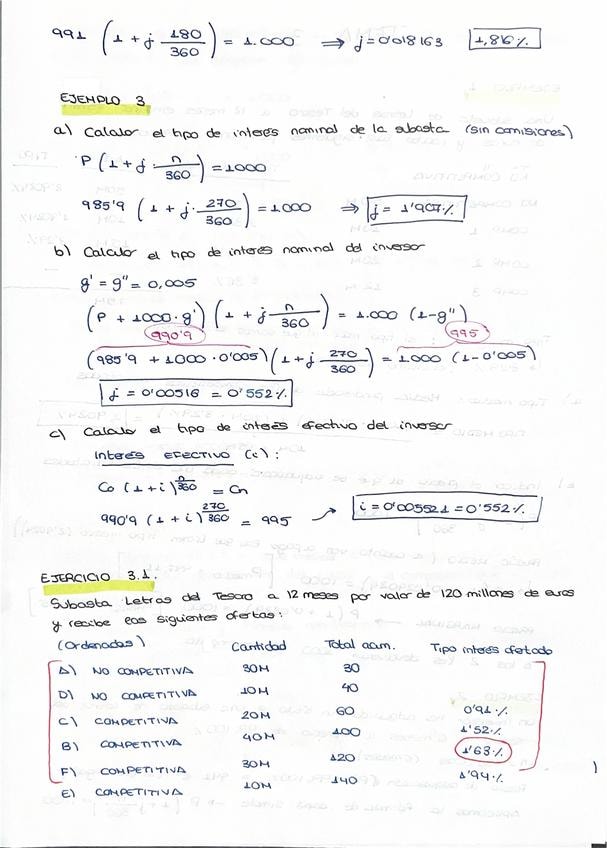 991 (1 + j 180/360) = 1.000 ⇒ j = 0'018163 1,816%
EJEMPLO 3
a) Calcular el tipo de interés nominal de la subasta (sin comisiones)
P (1 + j · n/360) = 1000
985'9 (1 + j · 270/360) = 1.000 ⇒ j = 1'907%
b) Calculo el tipo de interés nominal del inversor
g' = g'' = 0,005
(P + 1000 · g') (1 + j n/360) = 1.000 (1 - g'')
990'9 995
(985'9 + 1000 · 0'005) (1 + j · 270/360) = 1.000 (1 - 0'005)
j = 0'00516 = 0'552%
c) Calculo el tipo de interés efectivo del inversor
Interés EFECTIVO (i):
Co (1 + i)^n/360 = Cn
990'9 (1 + i)^270/360 = 995 → i = 0'005521 = 0'552%
EJERCICIO 3.1.
Subasta Letras del Tesoro a 12 meses por valor de 120 millones de euros
y recibe las siguientes ofertas:
(Ordenadas) Cantidad Total acum. Tipo interés ofertado
A) NO COMPETITIVA 30M 30
D) NO COMPETITIVA 10M 40
C) COMPETITIVA 20M 60 0'91%
B) COMPETITIVA 40M 100 1'52%
F) COMPETITIVA 30M 120 1'63%
E) COMPETITIVA 10M 140 1'94%